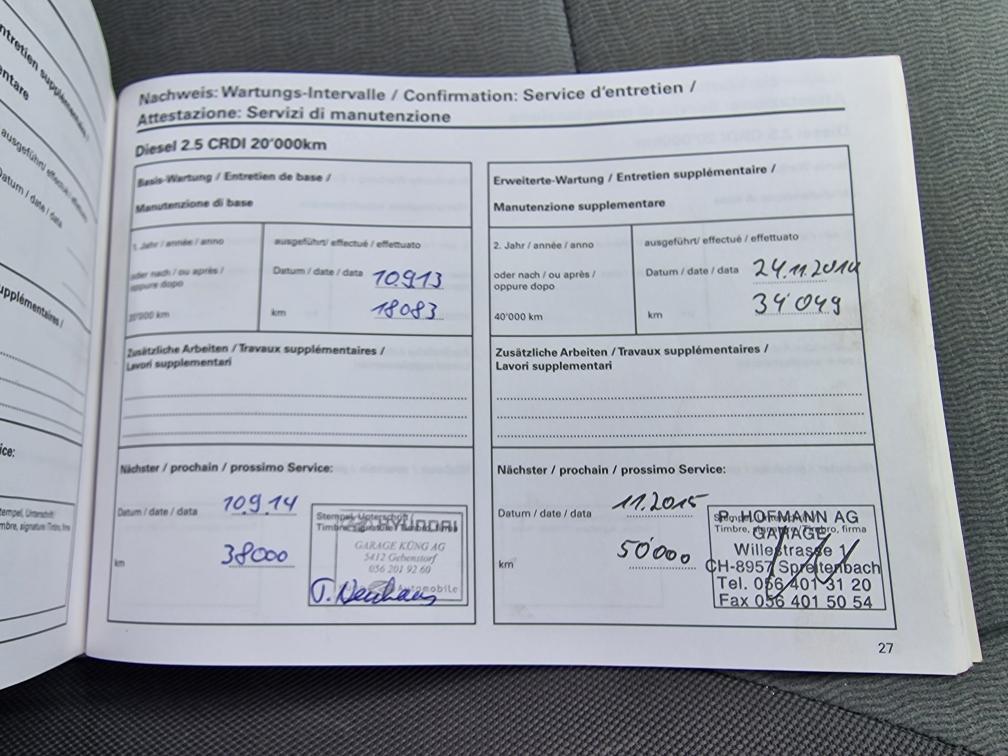 Nachweis: Wartungs-Intervalle / Confirmation: Service d'entretien /
Attestazione: Servizi di manutenzione
Diesel 2.5 CRDI 20'000km
Basis-Wartung / Entretien de base /
Manutenzione di base
1. Jahr / année / anno
oder nach / ou après /
oppure dopo
20'000 km
ausgeführt/ effectué / effettuato
Datum / date / data 10.9.13
km 18083
Zusätzliche Arbeiten / Travaux supplémentaires /
Lavori supplementari
Nächster / prochain / prossimo Service:
Datum / date / data 10.9.14
km 38000
HYUNDAI
GARAGE KÜNG AG
5412 Gebenstorf
056 201 92 60
Automobile
Erweiterte-Wartung / Entretien supplémentaire /
Manutenzione supplementare
2. Jahr / année / anno
oder nach / ou après /
oppure dopo
40'000 km
ausgeführt/ effectué / effettuato
Datum / date / data 24.11.2014
km 34'049
Zusätzliche Arbeiten / Travaux supplémentaires /
Lavori supplementari
Nächster / prochain / prossimo Service:
Datum / date / data 11.2015
km 50'000
P. HOFMANN AG
GARAGE
Willestrasse 1
CH-8957 Spreitenbach
Tel. 056 401 31 20
Fax 056 401 50 54
27